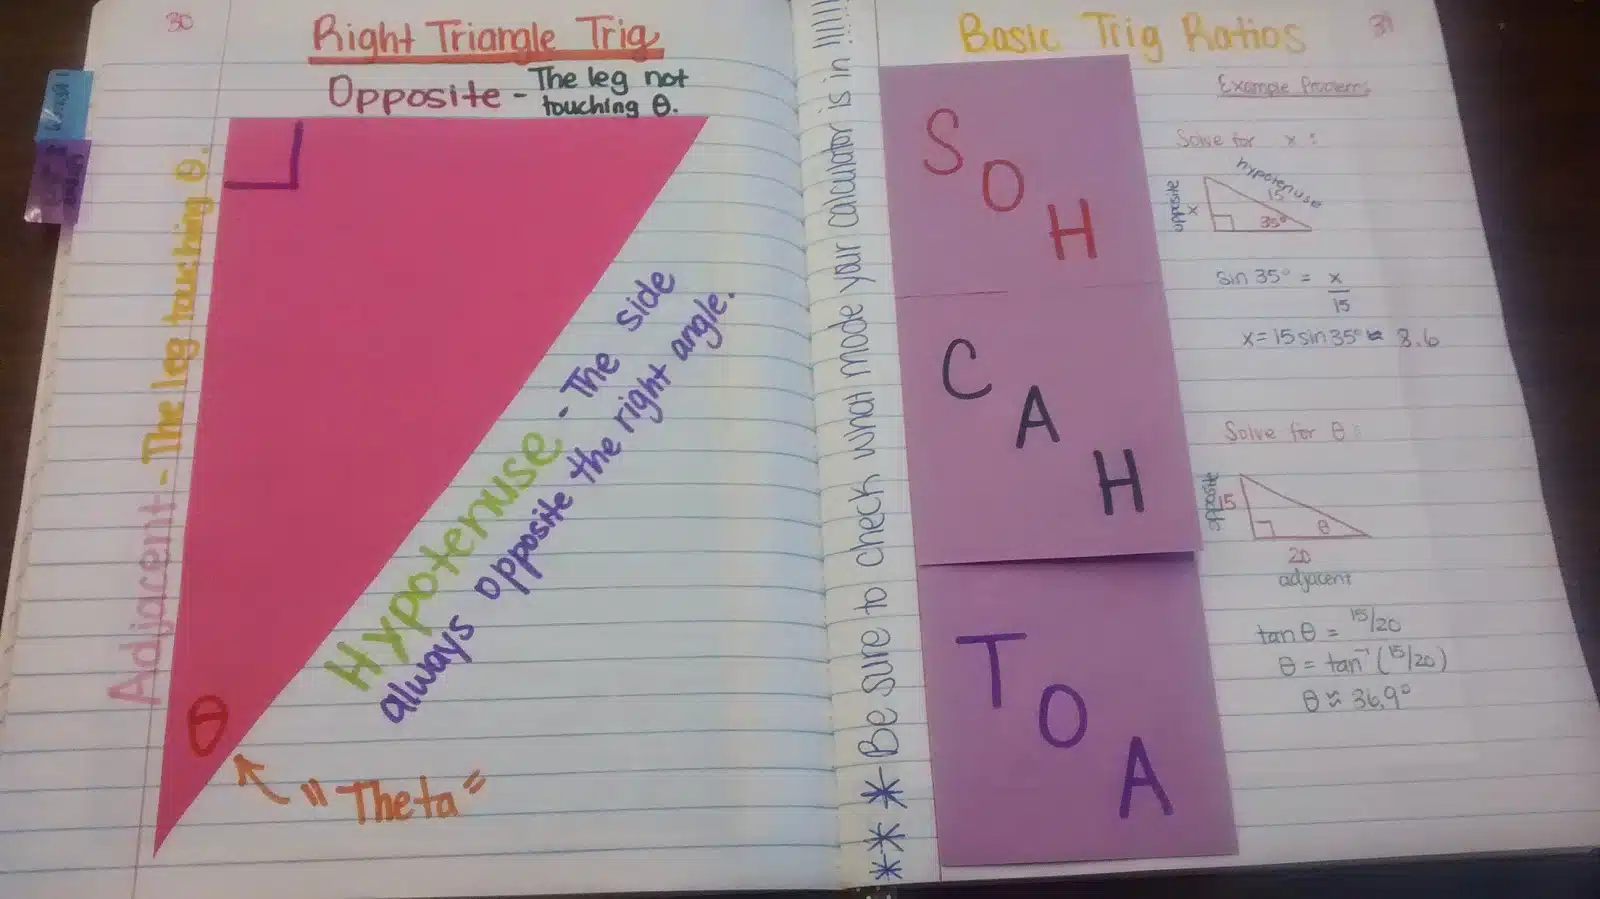 30
Right Triangle Trig
Opposite - The leg not
touching θ.
Adjacent - The leg touching θ.
Hypotenuse - The side
always opposite the right angle.
θ
"Theta"
*** Be sure to check what mode your calculator is in !!!!!!
Basic Trig Ratios
31
SOH
CAH
TOA
Example Problems
Solve for x:
hypotenuse
15
opposite
x
35°
sin 35° = x/15
x = 15 sin 35° ≈ 8.6
Solve for θ:
opposite
15
θ
20
adjacent
tan θ = 15/20
θ = tan⁻¹ (15/20)
θ ≈ 36.9°